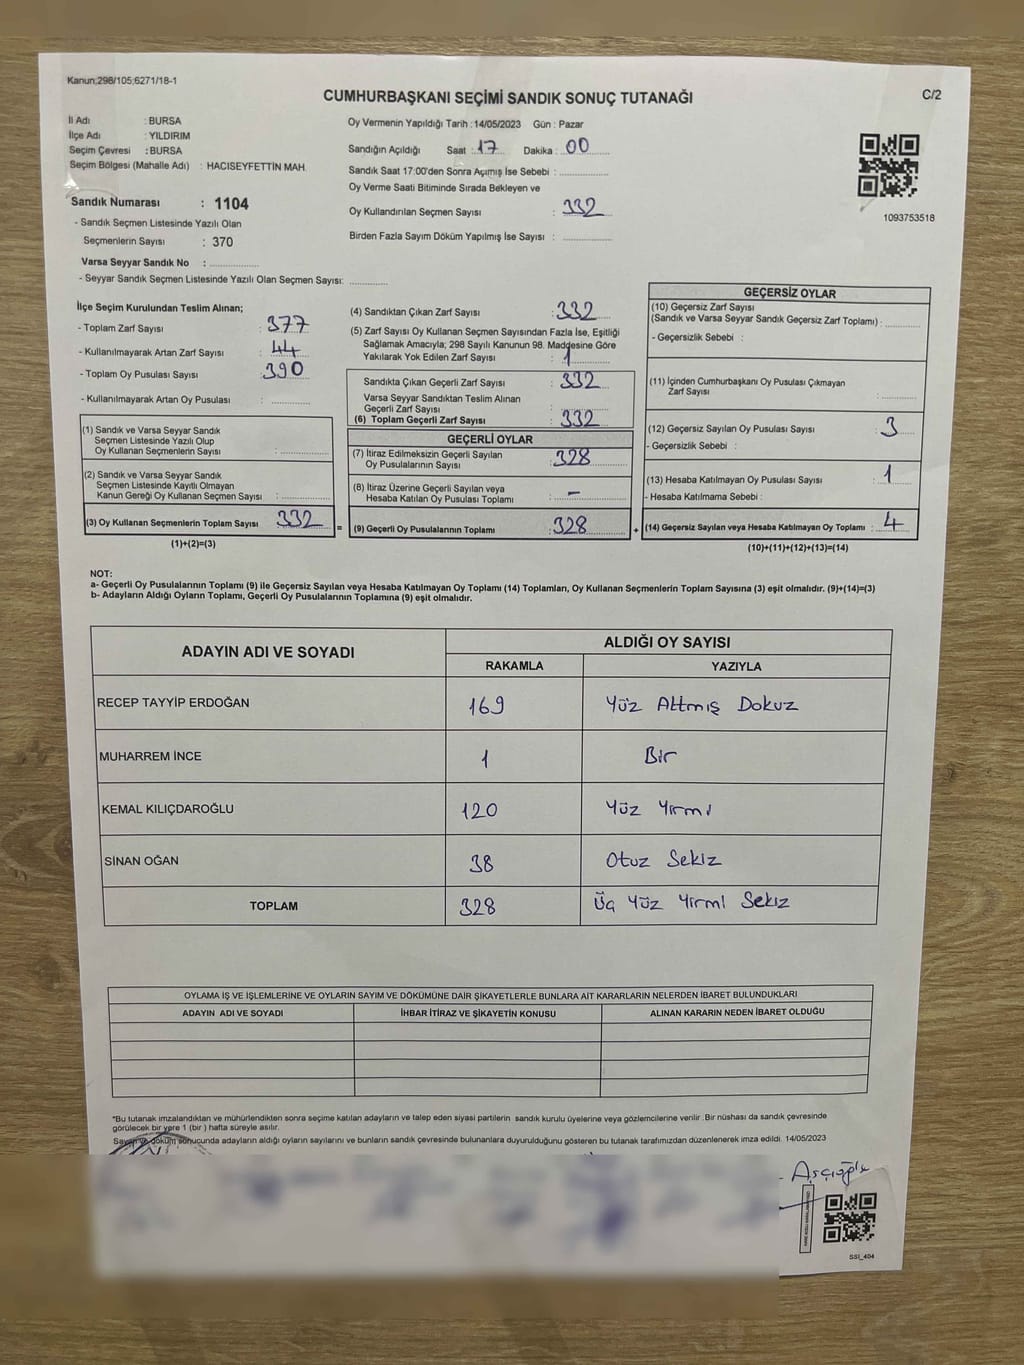 Kanun;298/105;6271/18-1
CUMHURBAŞKANI SEÇİMİ SANDIK SONUÇ TUTANAĞI
C/2
İl Adı : BURSA
İlçe Adı : YILDIRIM
Seçim Çevresi : BURSA
Seçim Bölgesi (Mahalle Adı) : HACISEYFETTİN MAH.
Sandık Numarası : 1104
- Sandık Seçmen Listesinde Yazılı Olan
Seçmenlerin Sayısı : 370
Varsa Seyyar Sandık No :
- Seyyar Sandık Seçmen Listesinde Yazılı Olan Seçmen Sayısı:
Oy Vermenin Yapıldığı Tarih : 14/05/2023 Gün : Pazar
Sandığın Açıldığı Saat : 17 Dakika : 00
Sandık Saat 17:00'den Sonra Açımış İse Sebebi :
Oy Verme Saati Bitiminde Sırada Bekleyen ve
Oy Kullandırılan Seçmen Sayısı : 332
Birden Fazla Sayım Döküm Yapılmış İse Sayısı :
1093753518
İlçe Seçim Kurulundan Teslim Alınan;
- Toplam Zarf Sayısı : 377
- Kullanılmayarak Artan Zarf Sayısı : 44
- Toplam Oy Pusulası Sayısı : 390
- Kullanılmayarak Artan Oy Pusulası :
(1) Sandık ve Varsa Seyyar Sandık
Seçmen Listesinde Yazılı Olup
Oy Kullanan Seçmenlerin Sayısı :
(2) Sandık ve Varsa Seyyar Sandık
Seçmen Listesinde Kayıtlı Olmayan
Kanun Gereği Oy Kullanan Seçmen Sayısı :
(3) Oy Kullanan Seçmenlerin Toplam Sayısı : 332
(1)+(2)=(3)
(4) Sandıktan Çıkan Zarf Sayısı : 332
(5) Zarf Sayısı Oy Kullanan Seçmen Sayısından Fazla İse, Eşitliği
Sağlamak Amacıyla; 298 Sayılı Kanunun 98. Maddesine Göre
Yakılarak Yok Edilen Zarf Sayısı : 1
Sandıkta Çıkan Geçerli Zarf Sayısı : 332
Varsa Seyyar Sandıktan Teslim Alınan
Geçerli Zarf Sayısı :
(6) Toplam Geçerli Zarf Sayısı : 332
GEÇERLİ OYLAR
(7) İtiraz Edilmeksizin Geçerli Sayılan
Oy Pusulalarının Sayısı : 328
(8) İtiraz Üzerine Geçerli Sayılan veya
Hesaba Katılan Oy Pusulası Toplamı : -
= (9) Geçerli Oy Pusulalarının Toplamı : 328
GEÇERSİZ OYLAR
(10) Geçersiz Zarf Sayısı
(Sandık ve Varsa Seyyar Sandık Geçersiz Zarf Toplamı) :
- Geçersizlik Sebebi :
(11) İçinden Cumhurbaşkanı Oy Pusulası Çıkmayan
Zarf Sayısı :
(12) Geçersiz Sayılan Oy Pusulası Sayısı : 3
- Geçersizlik Sebebi :
(13) Hesaba Katılmayan Oy Pusulası Sayısı : 1
- Hesaba Katılmama Sebebi :
+ (14) Geçersiz Sayılan veya Hesaba Katılmayan Oy Toplamı : 4
(10)+(11)+(12)+(13)=(14)
NOT:
a- Geçerli Oy Pusulalarının Toplamı (9) ile Geçersiz Sayılan veya Hesaba Katılmayan Oy Toplamı (14) Toplamları, Oy Kullanan Seçmenlerin Toplam Sayısına (3) eşit olmalıdır. (9)+(14)=(3)
b- Adayların Aldığı Oyların Toplamı, Geçerli Oy Pusulalarının Toplamına (9) eşit olmalıdır.
ADAYIN ADI VE SOYADI ALDIĞI OY SAYISI
RAKAMLA YAZIYLA
RECEP TAYYİP ERDOĞAN 169 Yüz Altmış Dokuz
MUHARREM İNCE 1 Bir
KEMAL KILIÇDAROĞLU 120 Yüz Yirmi
SİNAN OĞAN 38 Otuz Sekiz
TOPLAM 328 Üç Yüz Yirmi Sekiz
OYLAMA İŞ VE İŞLEMLERİNE VE OYLARIN SAYIM VE DÖKÜMÜNE DAİR ŞİKAYETLERLE BUNLARA AİT KARARLARIN NELERDEN İBARET BULUNDUKLARI
ADAYIN ADI VE SOYADI İHBAR İTİRAZ VE ŞİKAYETİN KONUSU ALINAN KARARIN NEDEN İBARET OLDUĞU
*Bu tutanak imzalandıktan ve mühürlendikten sonra seçime katılan adayların ve talep eden siyasi partilerin sandık kurulu üyelerine veya gözlemcilerine verilir. Bir nüshası da sandık çevresinde
görülecek bir yere 1 (bir) hafta süreyle asılır.
Sayım ve döküm sonucunda adayların aldığı oyların sayılarını ve bunların sandık çevresinde bulunanlara duyurulduğunu gösteren bu tutanak tarafımızdan düzenlenerek imza edildi. 14/05/2023
Aşçıoğlu
SSI_404